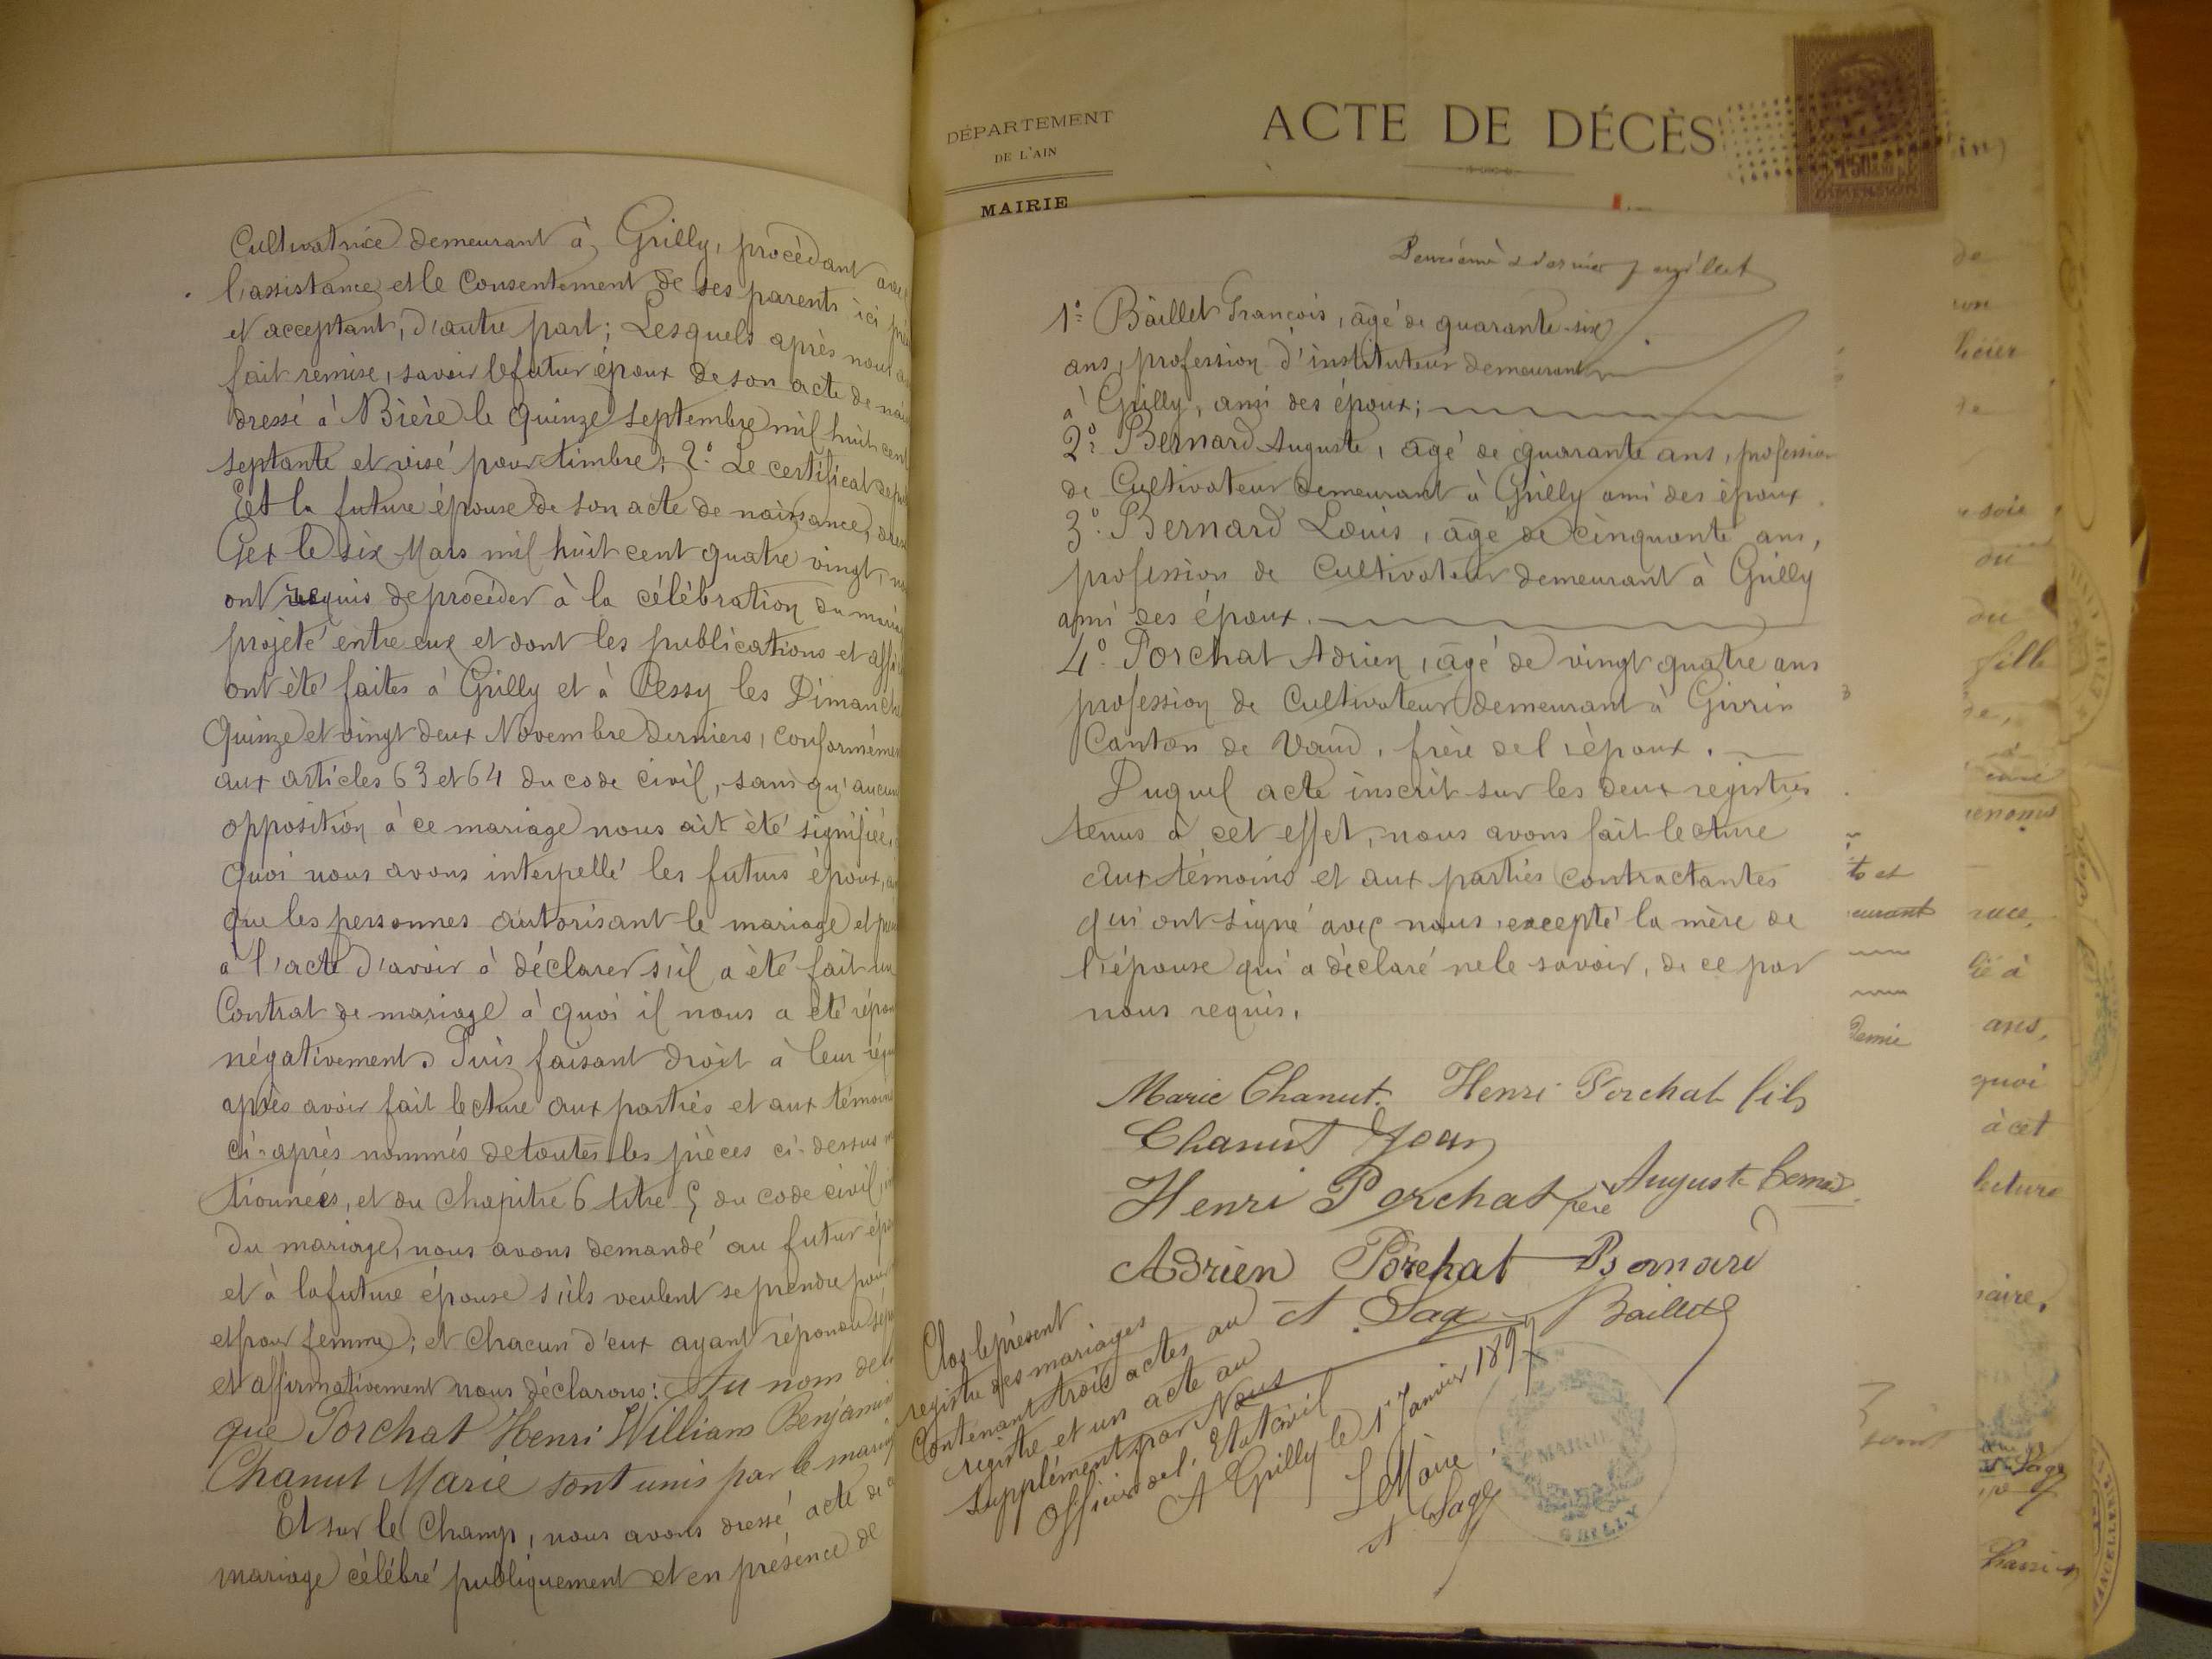 Cultivatrice demeurant à Grilly, procédant avec
l'assistance et le Consentement de ses parents ici
et acceptant, d'autre part; Lesquels après nous
fait remise, savoir le futur époux de son acte de
dressé à Bière le quinze Septembre mil huit cent
septante et visé pour timbre; 2° Le certificat de
Et la future épouse de son acte de naissance,
Gex le six Mars mil huit cent quatre vingt,
ont requis de procéder à la célébration du
projeté entre eux et dont les publications et
ont été faites à Grilly et à Cessy les Dimanche
Quinze et vingt deux Novembre derniers, conformément
aux articles 63 et 64 du code civil, sans qu'aucune
opposition à ce mariage nous ait été signifiée,
quoi nous avons interpellé les futurs époux,
que les personnes autorisant le mariage et
à l'acte d'avoir à déclarer s'il a été fait un
Contrat de mariage à quoi il nous a été
négativement. Puis faisant droit à leur
après avoir fait lecture aux parties et aux témoins
ci-après nommés de toutes les pièces ci-dessus
tionnées, et du chapitre 6 titre 5 du code civil,
du mariage, nous avons demandé au futur
et à la future épouse s'ils veulent se prendre pour
et pour femme; et chacun d'eux ayant répondu
et affirmativement nous déclarons: Au nom de
que Porchat Henri William Benjamin
Chanut Marie sont unis par le
Et sur le Champ, nous avons dressé acte de
mariage célébré publiquement et en présence de
DÉPARTEMENT
DE L'AIN
MAIRIE
ACTE DE DÉCÈS
Deuxième & dernier feuillet
1° Baillet François, âgé de quarante-six
ans, profession d'instituteur demeurant
à Grilly, ami des époux;
2° Bernard Auguste, âgé de quarante ans, profession
de Cultivateur demeurant à Grilly ami des époux
3° Bernard Louis, âgé de cinquante ans,
profession de Cultivateur demeurant à Grilly
ami des époux.
4° Porchat Adrien, âgé de vingt quatre ans
profession de Cultivateur demeurant à Givrin
Canton de Vaud, frère de l'époux.
Duquel acte inscrit sur les deux registres
tenus à cet effet, nous avons fait lecture
aux témoins et aux parties contractantes
qui ont signé avec nous, excepté la mère de
l'épouse qui a déclaré ne le savoir, de ce par
nous requis,
Marie Chanut. Henri Porchat fils
Chanut Jean
Henri Porchat père Auguste Bernard
Adrien Porchat Bernard
A. Sage Baillet
Clos le présent
registre des mariages
Contenant trois actes au
registre et un acte au
supplément par Nous
Officier de l'Etat civil
A Grilly le 1er Janvier 1897
Le Maire
A Sage
MAIRIE
GRILLY
de
soie
du
du
fille
to et
lié à
ans,
quoi
à cet
lecture